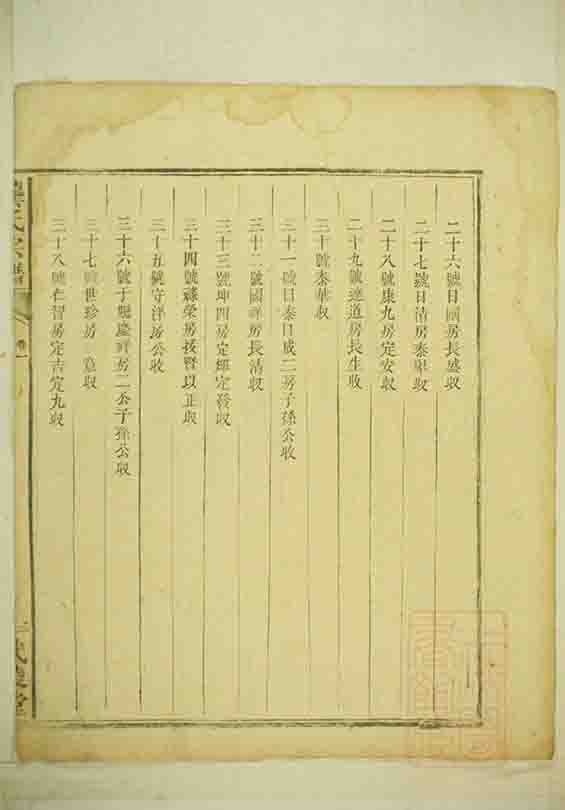 二十六號日國房長盛收
二十七號日清房泰興收
二十八號康九房定安收
二十九號達道房長生收
三十號泰華收
三十一號日泰日成二房子孫公收
三十二號國祥房長清收
三十三號坤四房定經定發收
三十四號祿榮房援賢以正收
三十五號守洋房公收
三十六號于魁慶祥房二公子孫公收
三十七號世珍房 收
三十八號仁智房定吉定九收
氏宗譜
卷一
武陵堂